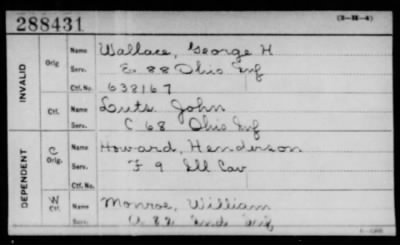 288431
(3-22-4)
INVALID
Orig.
Name Wallace, George H
Serv. E 88 Ohio Inf
Ctf. No. 638167
Ctf.
Name Luts John
Serv. C 68 Ohio Inf
DEPENDENT
C Orig.
Name Howard, Henderson
Serv. F 9 Ill Cav
Ctf. No.
W Ctf.
Name Monroe, William
Serv. 82 Ind Inf